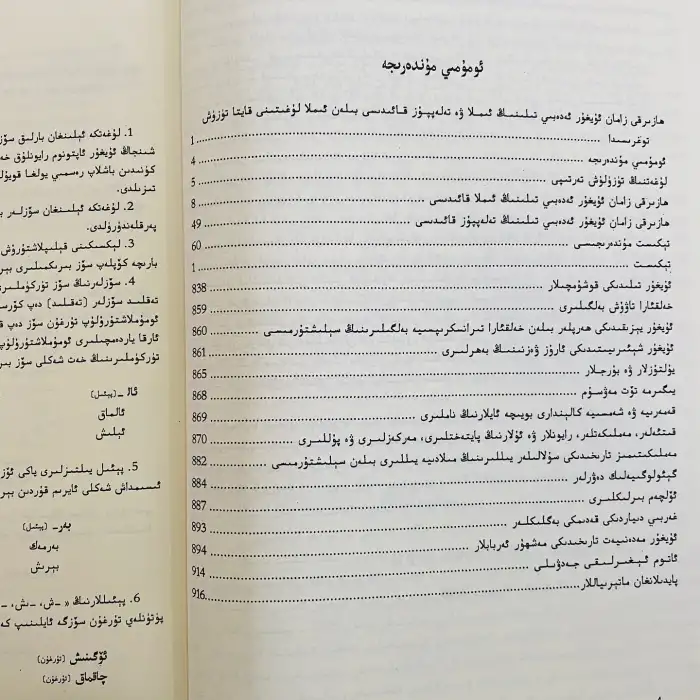 ئومۇمىي مۇندەرىجە
ھازىرقى زامان ئۇيغۇر ئەدەبىي تىلىنىڭ ئىملا ۋە تەلەپپۇز قائىدىسى بىلەن ئىملا لۇغىتىنى قايتا تۈزۈش
توغرىسىدا 1
ئومۇمىي مۇندەرىجە 4
لۇغەتنىڭ تۈزۈلۈش تەرتىپى 5
ھازىرقى زامان ئۇيغۇر ئەدەبىي تىلىنىڭ ئىملا قائىدىسى 8
ھازىرقى زامان ئۇيغۇر ئەدەبىي تىلىنىڭ تەلەپپۇز قائىدىسى 49
تېكىست مۇندەرىجىسى 60
تېكىست 1
ئۇيغۇر تىلىدىكى قوشۇمچىلار 838
خەلقئارا تاۋۇش بەلگىلىرى 859
ئۇيغۇر يېزىقىدىكى ھەرپلەر بىلەن خەلقئارا ترانسكرىپسىيە بەلگىلىرىنىڭ سېلىشتۇرمىسى 860
ئۇيغۇر شېئىرىيىتىدىكى ئارۇز ۋەزنىنىڭ بەھرلىرى 861
يۇلتۇزلار ۋە بۇرجلار 865
يىگىرمە تۆت مەۋسۇم 868
قەمەرىيە ۋە شەمسىيە كالېندارى بويىچە ئايلارنىڭ ناملىرى 869
قىتئەلەر، مەملىكەتلەر، رايونلار ۋە ئۇلارنىڭ پايتەختلىرى، مەركەزلىرى ۋە پۇللىرى 870
مەملىكىتىمىز تارىخىدىكى سۇلالىلەر يىللىرىنىڭ مىلادىيە يىللىرى بىلەن سېلىشتۇرمىسى 882
گېئولوگىيەلىك دەۋرلەر 884
ئۆلچەم بىرلىكلىرى 887
غەربىي دىياردىكى قەدىمكى بەگلىكلەر 893
ئۇيغۇر مەدەنىيەت تارىخىدىكى مەشھۇر ئەربابلار 894
ئاتوم ئېغىرلىقى جەدۋىلى 914
پايدىلانغان ماتېرىياللار 916
1. لۇغەتكە ئېلىنغان بارلىق سۆز
شىنجاڭ ئۇيغۇر ئاپتونوم رايونلۇق خە
كۈنىدىن باشلاپ رەسمىي يولغا قويۇل
تىزىلدى.
2. لۇغەتكە ئېلىنغان سۆزلەر
پەرقلەندۈرۈلدى.
3. لېكسىكىنى قېلىپلاشتۇرۇش
بارىچە كۆپلەپ سۆز بىرىكمىلىرى بېر
4. سۆزلەرنىڭ تۈركۈملىرى
تەقلىد سۆزلەر [تەقلىد] دەپ كۆرسە
ئومۇملاشتۇرۇلۇپ تۇرغۇن سۆز دەپ
ئارقا ياردەمچىلىرى ئومۇملاشتۇرۇلۇپ
تۈركۈملىرىنىڭ خەت شەكلى سۆز بىر
ئال ـ [پېئىل]
ئالماق
ئېلىش
5. پېئىل يىلتىزلىرى ياكى ئۆز
ئىسىمداش شەكلى ئايرىم قۇردىن بېر
بەرـ [پېئىل]
بەرمەك
بېرىش
6. پېئىللارنىڭ « ـش، ـىش، ـ
پۈتۈنلەي تۇرغۇن سۆزگە ئايلىنىپ كە
ئۆگىنىش [تۇرغۇن]
چاقماق [تۇرغۇن]